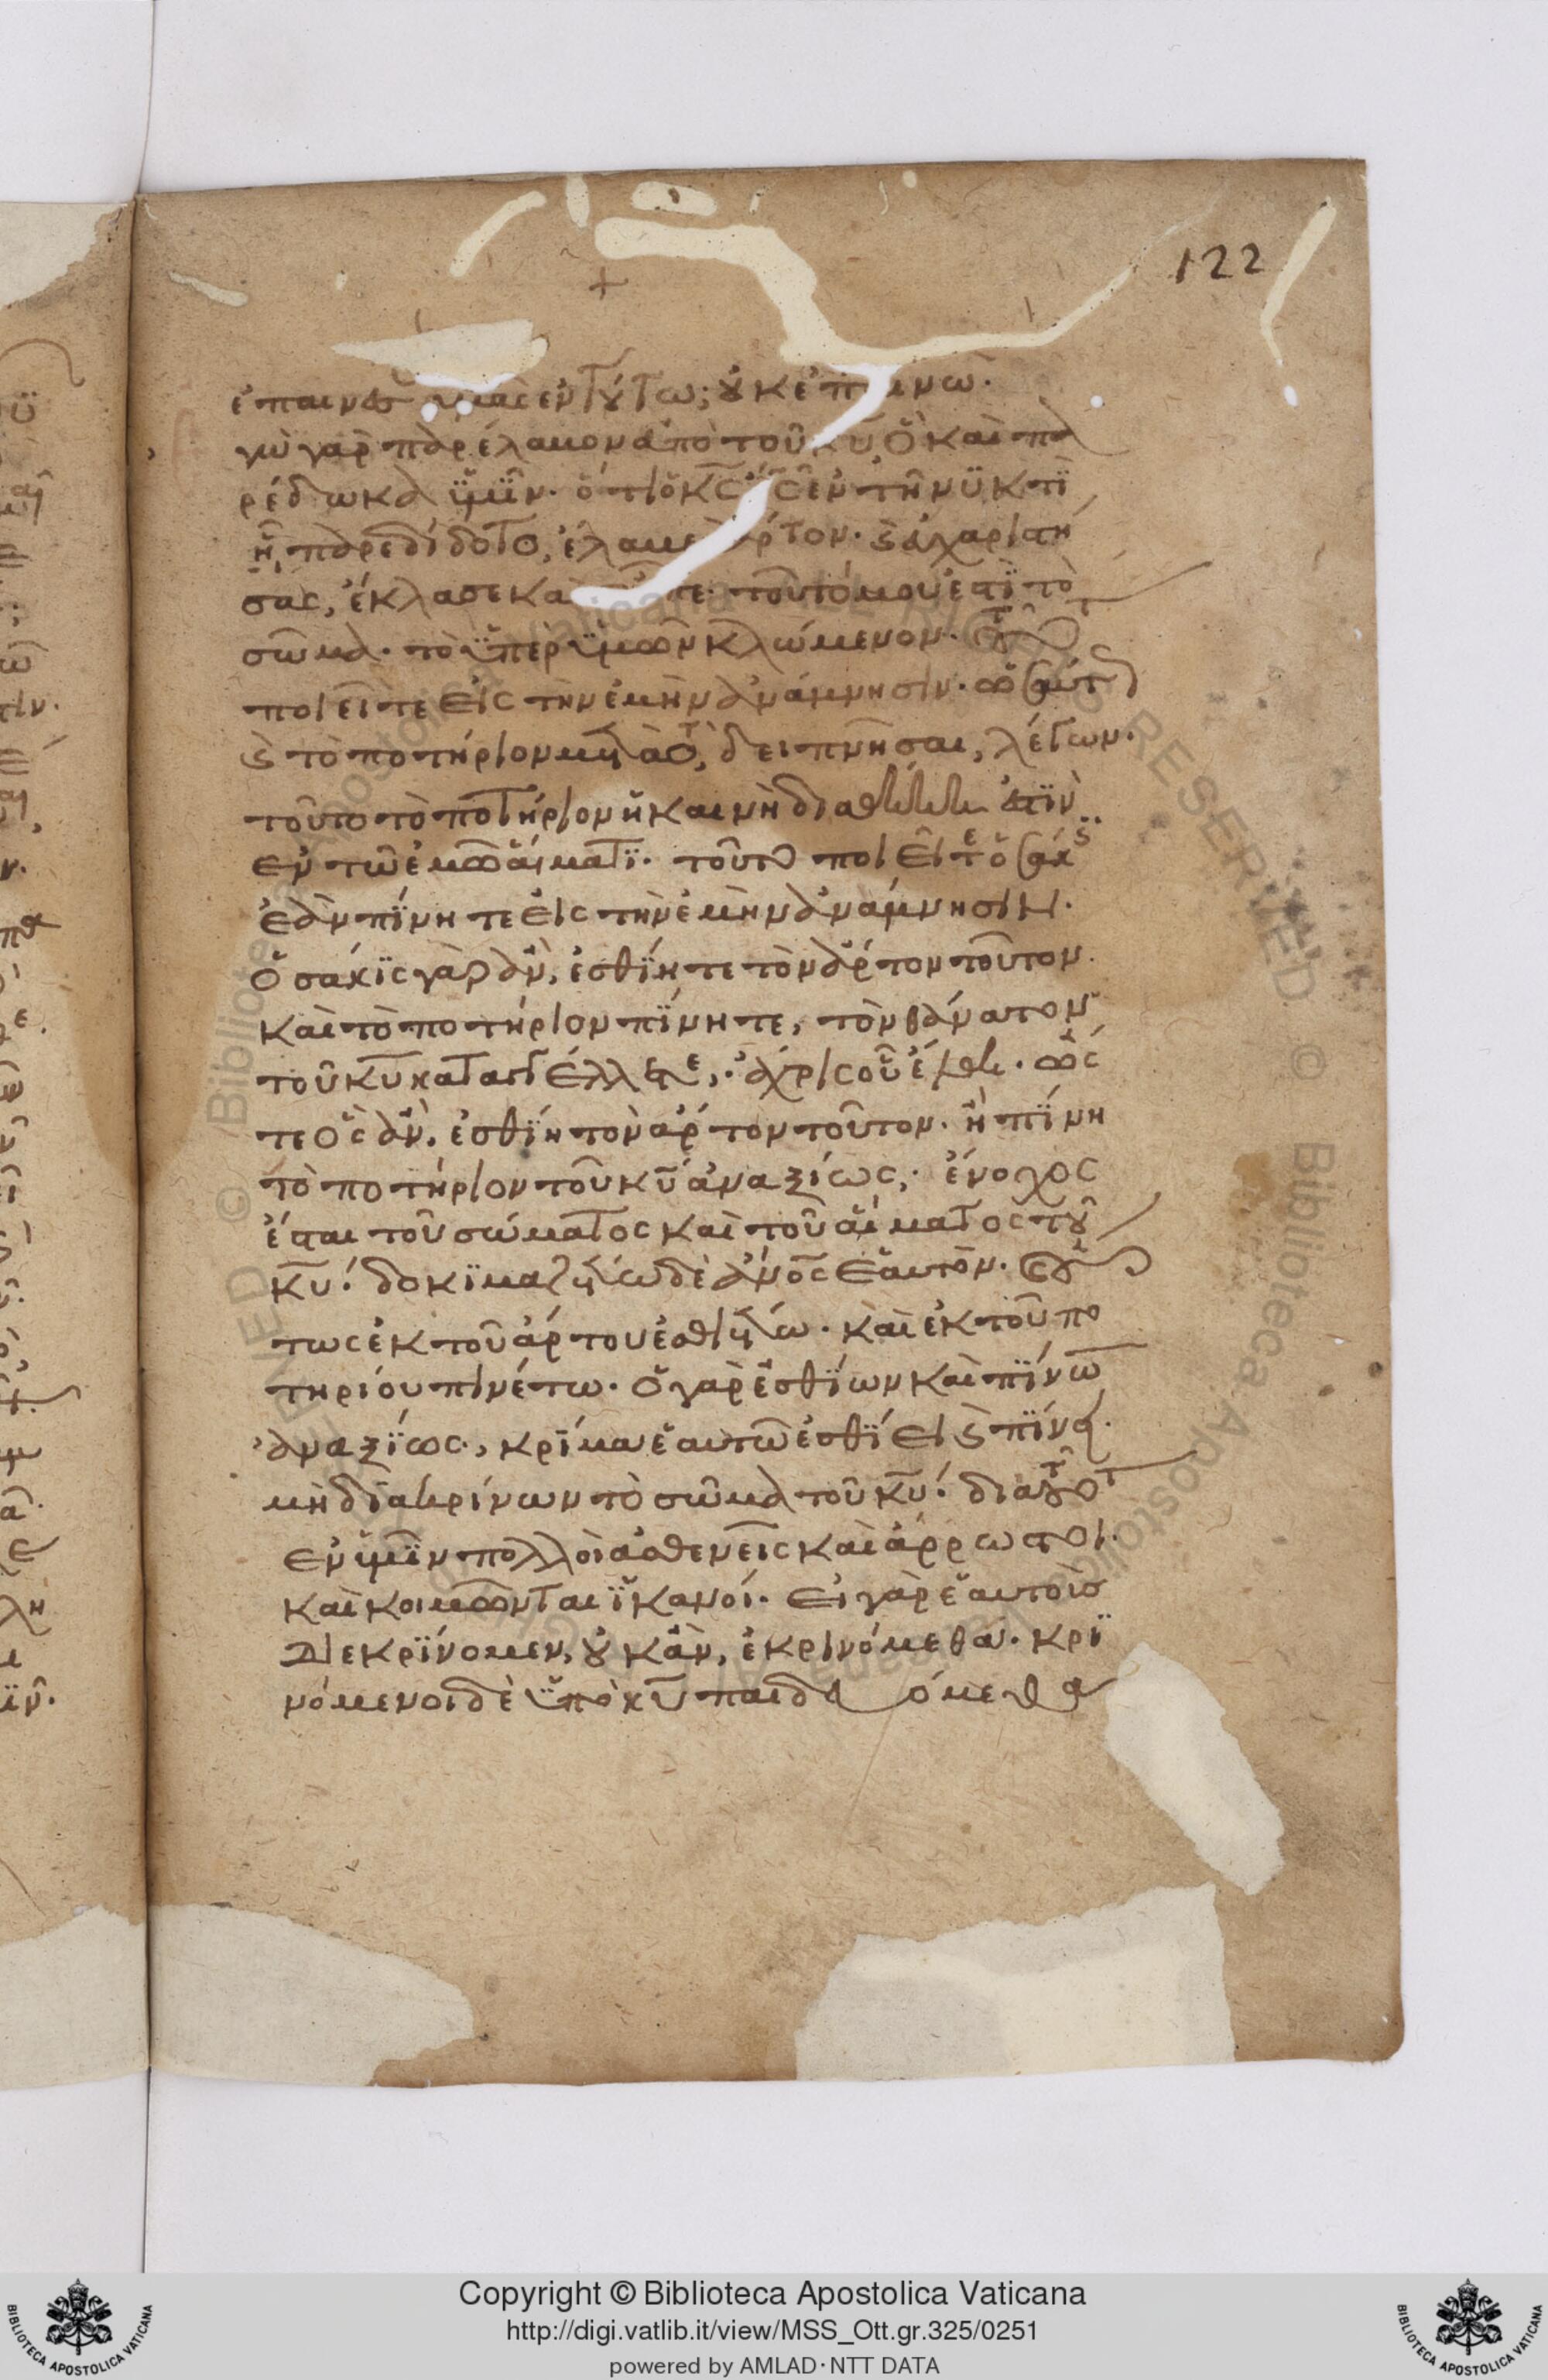 122
ἐπαινέσω ὑμᾶς ἐν τούτω; οὐκ ἐπαινῶ.
γὼ γὰρ παρέλαβον ἀπὸ τοῦ κυ, ὃ καὶ πα
ρέδωκα ὑμῖν. ὅτι ὁ κς ις ἐν τῆ νυκτὶ
ἧ παρεδίδοτο, ἔλαβεν ἄρτον. καὶ εὐχαριστή
σας, ἔκλασε καὶ εἶπε. τοῦτό μου ἐστὶ τὸ
σῶμα. τὸ ὑπὲρ ὑμῶν κλώμενον. τοῦτο
ποιεῖτε εἰς τὴν ἐμὴν ἀνάμνησιν. ὡσαύτως
καὶ τὸ ποτήριον μετὰ τὸ δειπνῆσαι, λέγων.
τοῦτο τὸ ποτήριον ἡ καινὴ διαθήκη ἐστὶν
ἐν τῶ ἐμῶ αἵματι. τοῦτο ποιεῖτε ὁσάκις
ἐὰν πίνητε εἰς τὴν ἐμὴν ἀνάμνησιν.
ὁσάκις γὰρ ἂν, ἐσθίητε τὸν ἄρτον τοῦτον.
καὶ τὸ ποτήριον πίνητε, τὸν θάνατον
τοῦ κυ καταγγέλλετε, ἄχρις οὗ ἔλθη. ὥσ
τε ὃς ἂν, ἐσθίη τὸν ἄρτον τοῦτον. ἢ πίνη
τὸ ποτήριον τοῦ κυ ἀναξίως, ἔνοχος
ἔσται τοῦ σώματος καὶ τοῦ αἵματος τοῦ
κυ. δοκιμαζέτω δὲ ἀνος ἑαυτὸν. καὶ οὕ
τως ἐκ τοῦ ἄρτου ἐσθιέτω. καὶ ἐκ τοῦ πο
τηρίου πινέτω. ὁ γὰρ ἐσθίων καὶ πίνων
ἀναξίως, κρίμα ἑαυτῶ ἐσθίει καὶ πίνει.
μὴ διακρίνων τὸ σῶμα τοῦ κυ. διὰ τοῦτο
ἐν ὑμῖν πολλοὶ ἀσθενεῖς καὶ ἄρρωστοι.
καὶ κοιμῶνται ἱκανοί. εἰ γὰρ ἑαυτοὺς
διεκρίνομεν, οὐκ ἂν, ἐκρινόμεθα. κρι
νόμενοι δὲ ὑπὸ κυ παιδευόμεθα
Copyright © Biblioteca Apostolica Vaticana
http://digi.vatlib.it/view/MSS_Ott.gr.325/0251
powered by AMLAD·NTT DATA
BIBLIOTECA APOSTOLICA VATICANA
BIBLIOTECA APOSTOLICA VATICANA